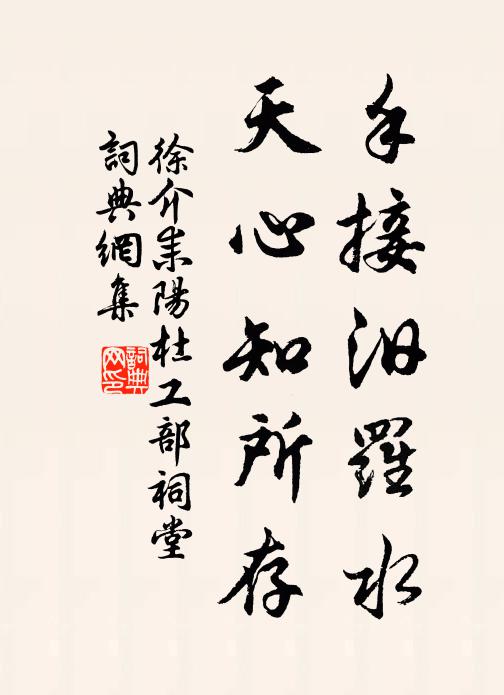 手接汨羅水
天心知所存
徐介耒陽杜工部祠堂
詞典網集
詞典网印